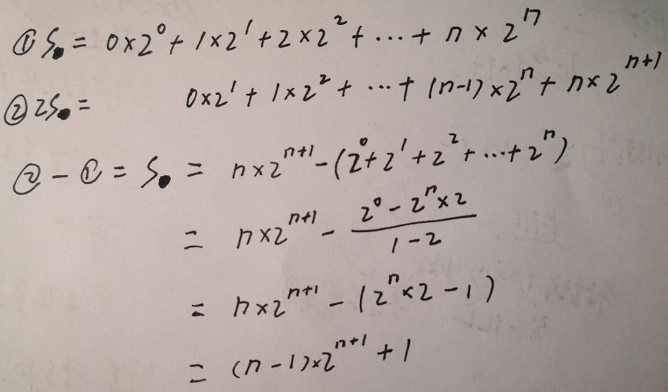 ① S = 0×2⁰ + 1×2¹ + 2×2² + ⋯ + n×2ⁿ
② 2S = 0×2¹ + 1×2² + ⋯ + (n-1)×2ⁿ + n×2ⁿ⁺¹
② - ① = S = n×2ⁿ⁺¹ - (2⁰+2¹+2²+⋯+2ⁿ)
= n×2ⁿ⁺¹ - (2⁰ - 2ⁿ×2)/(1-2)
= n×2ⁿ⁺¹ - (2ⁿ×2 - 1)
= (n-1)×2ⁿ⁺¹ + 1